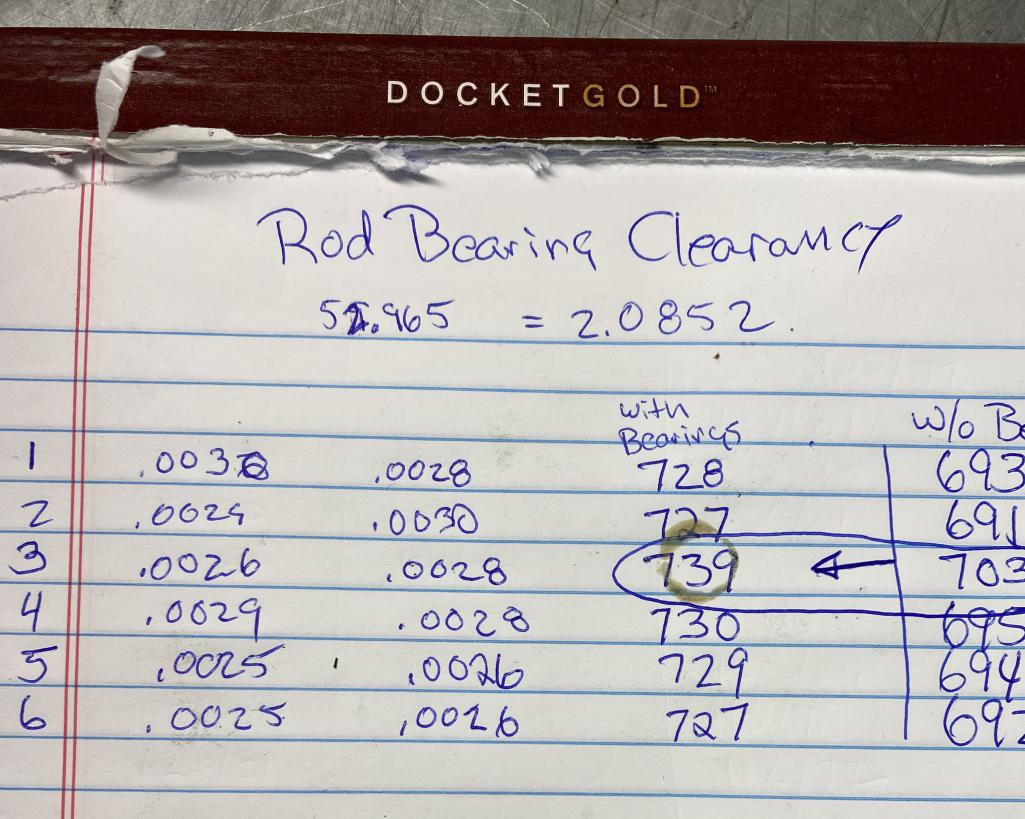 DOCKETGOLD™
Rod Bearing Clearancy
52.965 = 2.0852.
with Bearings w/o Be
1 .0028 728 693
2 .0029 .0030 727 691
3 .0026 .0028 739 703
4 .0029 .0028 730 695
5 .0025 .0026 729 694
6 .0025 .0026 727 692